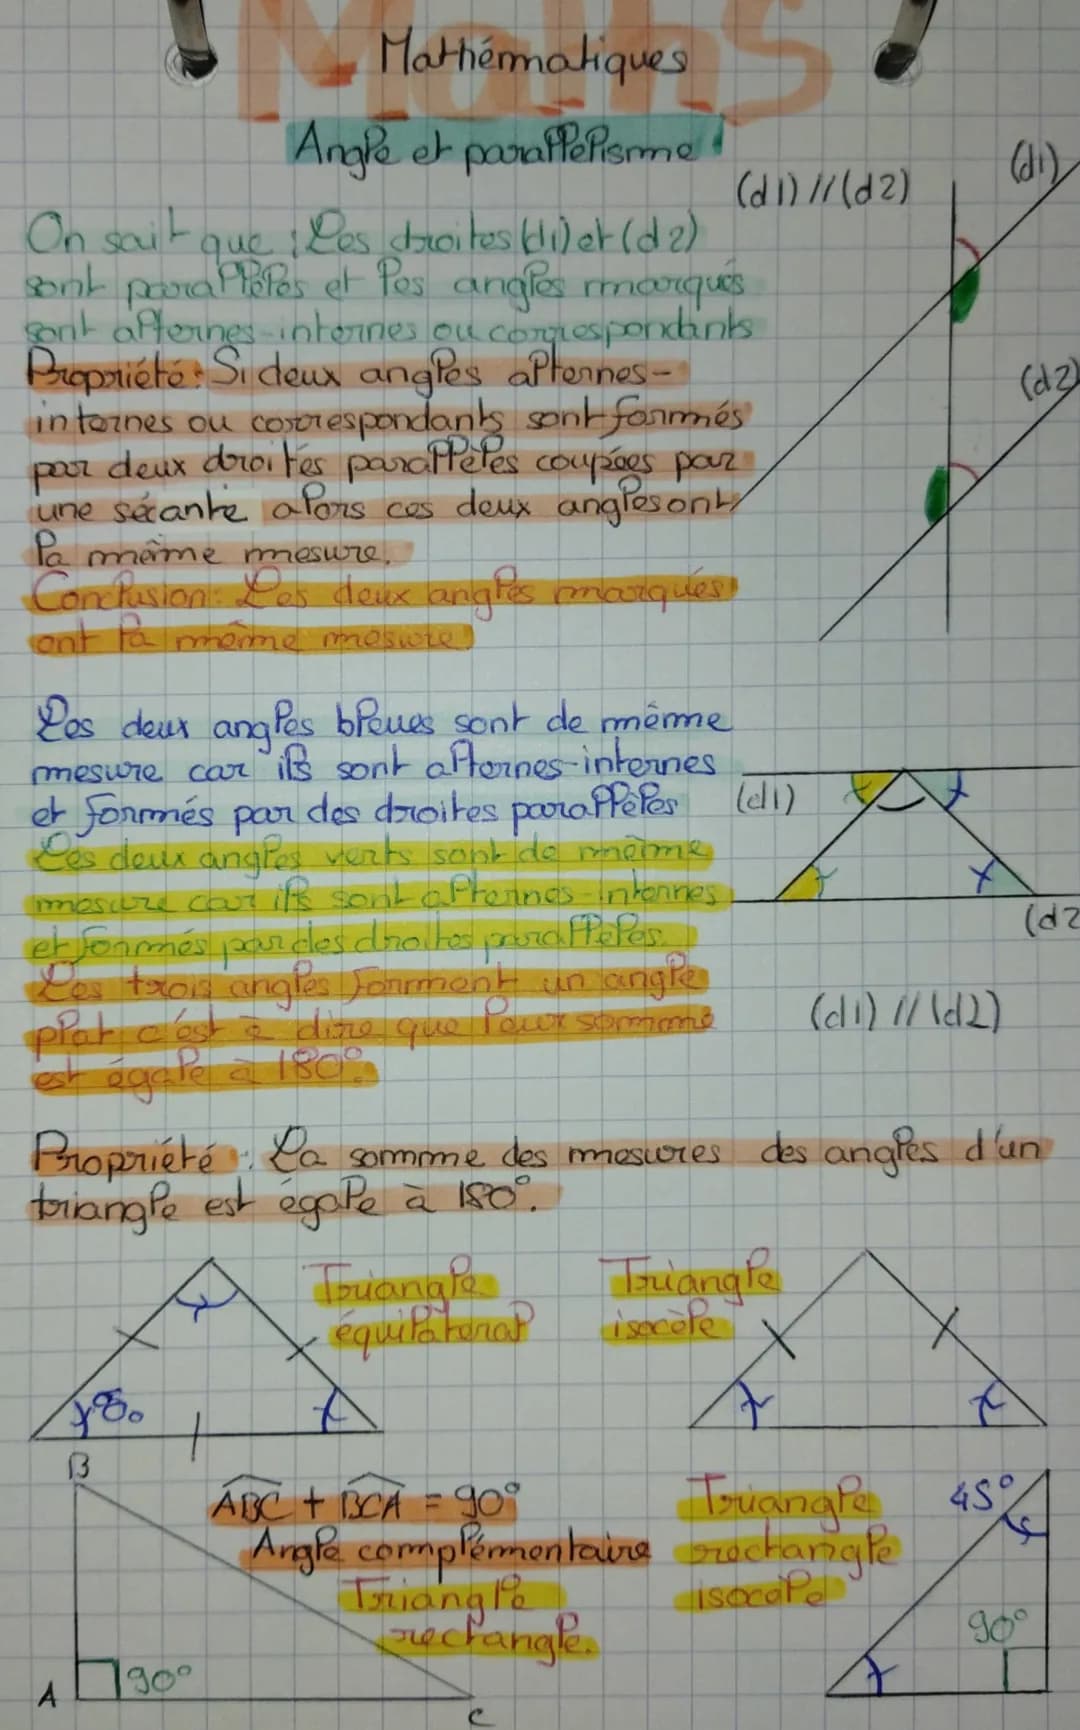 Maths
Mathématiques
Angle et parallélisme
(d1) // (d2)
(d1)
On sait que : Les droites (d1) et (d2)
sont parallèles et les angles marqués
sont alternes-internes ou correspondants
Propriété : Si deux angles alternes-
internes ou correspondants sont formés
par deux droites parallèles coupées par
une sécante alors ces deux angles ont
la même mesure.
Conclusion : Les deux angles marqués
ont la même mesure
(d2)
Les deux angles bleues sont de même
mesure car ils sont alternes-internes
et formés par des droites parallèles
Les deux angles verts sont de même
mesure car ils sont alternes-internes
et formés par des droites parallèles.
Les trois angles forment un angle
plat c'est à dire que leur somme
est égale à 180°.
(d1)
(d2
(d1) // (d2)
Propriété : La somme des mesures des angles d'un
triangle est égale à 180°.
Triangle
équilatéral
Triangle
isocèle
B
ABC + BCA = 90°
Angle complémentaire
Triangle
rectangle.
A
90°
C
Triangle
rectangle
isocèle
45°
90°